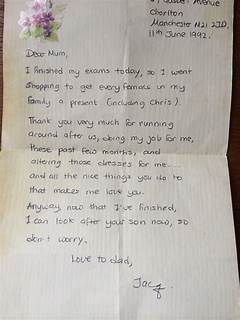 Avenue
Chorlton
Manchester M21 2JD.
11th June 1992.
Dear Mum,
I finished my exams today, so I went
shopping to get every female in my
family a present (including Chris).
Thank you very much for running
around after us, doing my job for me,
these past few months, and
altering those dresses for me....
and all the nice things you do to
that makes me love you.
Anyway, now that I've finished,
I can look after your son now, so
don't worry.
Love to dad,